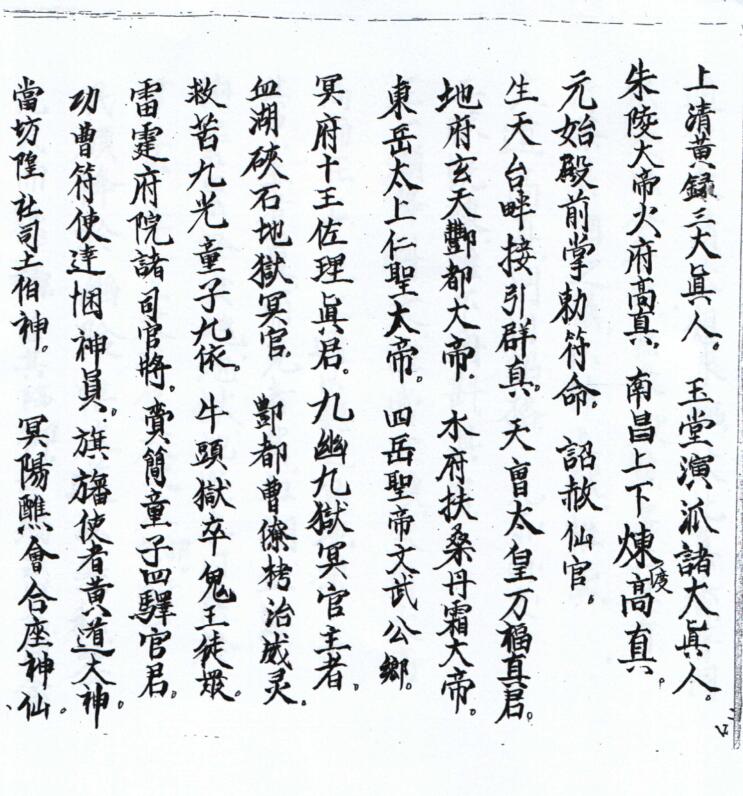 上清黃録三大眞人。玉堂演派諸大眞人。
朱陵大帝火府高真。南昌上下煉度高真。
元始殿前掌勅符命。詔赦仙官。
生天台畔接引群真。天曺太皇万福真君。
地府玄天酆都大帝。水府扶桑丹霜大帝。
東岳太上仁聖大帝。四岳聖帝文武公鄉。
冥府十王佐理眞君。九幽九獄冥官主者。
血湖硤石地獄冥官。酆都曹僚栲治威灵。
救苦九光童子九依。牛頭獄卒鬼王徒
雷霆府院諸司官將。賫簡童子四驛官君。
功曹符使達悃神員。旗旛使者黄道大神。
當坊隍社司土伯神。冥陽醮會合座神仙。